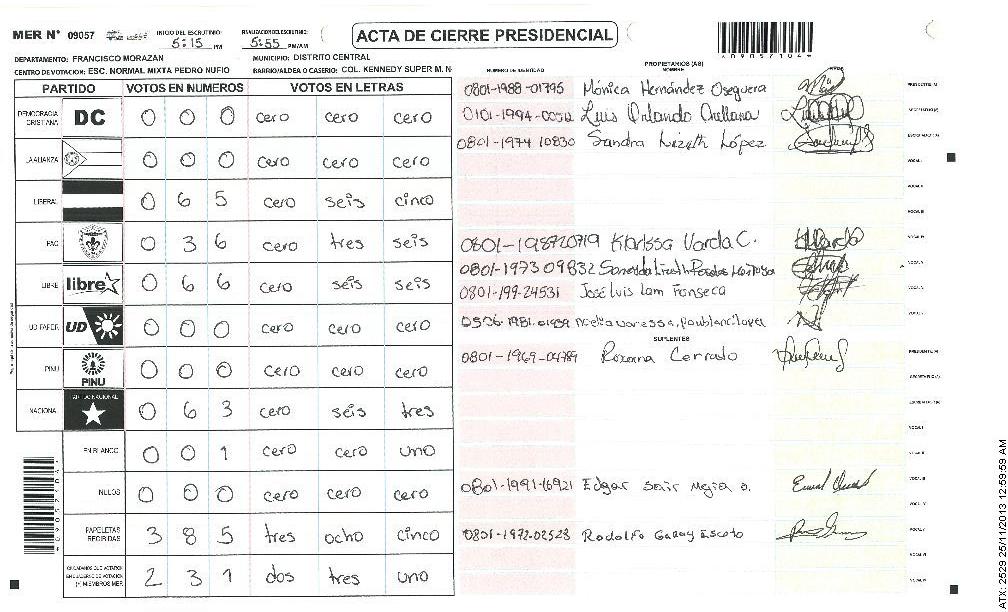 MER N° 09057 INICIO DEL ESCRUTINIO: 5:15 PM FINALIZACION DEL ESCRUTINIO: 5:55 PM/AM ACTA DE CIERRE PRESIDENCIAL
DEPARTAMENTO: FRANCISCO MORAZAN MUNICIPIO: DISTRITO CENTRAL
CENTRO DE VOTACION: ESC. NORMAL MIXTA PEDRO NUFIO BARRIO/ALDEA O CASERIO: COL. KENNEDY SUPER M. N
NUMERO DE IDENTIDAD PROPIETARIOS (AS) NOMBRE FIRMA
PARTIDO VOTOS EN NUMEROS VOTOS EN LETRAS
DEMOCRACIA CRISTIANA DC 0 0 0 cero cero cero
LA ALIANZA 0 0 0 cero cero cero
LIBERAL 0 6 5 cero seis cinco
PAC 0 3 6 cero tres seis
LIBRE libre 0 6 6 cero seis seis
UD FAPER UD 0 0 0 cero cero cero
PINU PINU 0 0 0 cero cero cero
NACIONAL PARTIDO NACIONAL 0 6 3 cero seis tres
EN BLANCO 0 0 1 cero cero uno
NULOS 0 0 0 cero cero cero
PAPELETAS RECIBIDAS 3 8 5 tres ocho cinco
CIUDADANOS QUE VOTARON EN CUADERNO DE VOTACION (+) MIEMBROS MER 2 3 1 dos tres uno
0801-1988-01795 Mónica Hernández Oseguera
Luis Orlando Orellana
0801-1974 10830 Sandra Lizeth López
0801-198720719 Klarissa Varda C.
0801-1973 09832
0801-199-24531 José Luis Lam Fonseca
SUPLENTES
0801-1969-04789 Roxana Cerrato
0801-1991-16921 Edgar Sair Mejia o.
0801-1972-02528 Rodolfo Garay Escoto
ATX: 2529 25/11/2013 12:59:59 AM